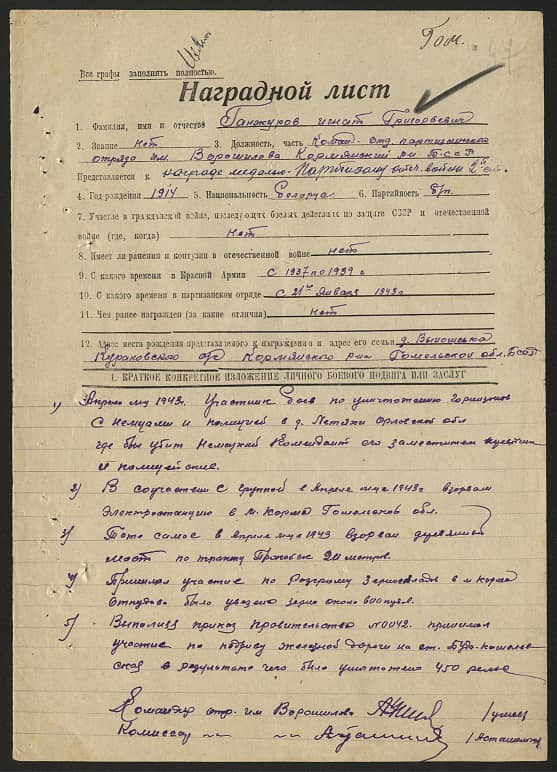 Гом.
Все графы заполнять полностью.
Наградной лист
1. Фамилия, имя и отчество Ганжуров Игнат Григорьевич
2. Звание нет 3. Должность, часть Команд. отд. партизанского
отряда им. Ворошилова Кормянский р-н БССР
Представляется к награде медалью „Партизану отеч. войны 2й ст.
4. Год рождения 1914 5. Национальность Белорус 6. Партийность б/п.
7. Участие в гражданской войне, последующих боевых действиях по защите СССР и отечественной
войне (где, когда) нет
8. Имеет ли ранения и контузии в отечественной войне нет
9. С какого времени в Красной Армии с 1937 по 1939 г
10. С какого времени в партизанском отряде с 21го Января 1943 г
11. Чем ранее награжден (за какие отличия) нет
12. Адрес места рождения представляемого к награждению и адрес его семьи д.
Кормянского р-на Гомельской обл. БССР
I. КРАТКОЕ КОНКРЕТНОЕ ИЗЛОЖЕНИЕ ЛИЧНОГО БОЕВОГО ПОДВИГА ИЛИ ЗАСЛУГ
1) Апрель м-ц 1943г. Участник боев по уничтожению гарнизонов
с немцами и полицией в д. Орловской обл
где был убит немецкий комендант его заместитель
и полицейские.
2) В соучастии с группой в Апреле м-це 1943г взорвали
электростанцию в м. Корма Гомельской обл.
3) Тоже самое в Апреле м-це 1943 взорван деревянный
мост по тракту 24 метров.
4) Принимал участие по Разгрому Зерносклада в м Корма
Оттудова было увезено зерно около 600 пуд.
5) Выполняя приказ правительства №0042. принимал
участие по подрыву железной дороги на ст. Буда-кошелев
ская в результате чего было уничтожено 450 рельс
Командир отр. им Ворошилова
Комиссар — „ — — „ —